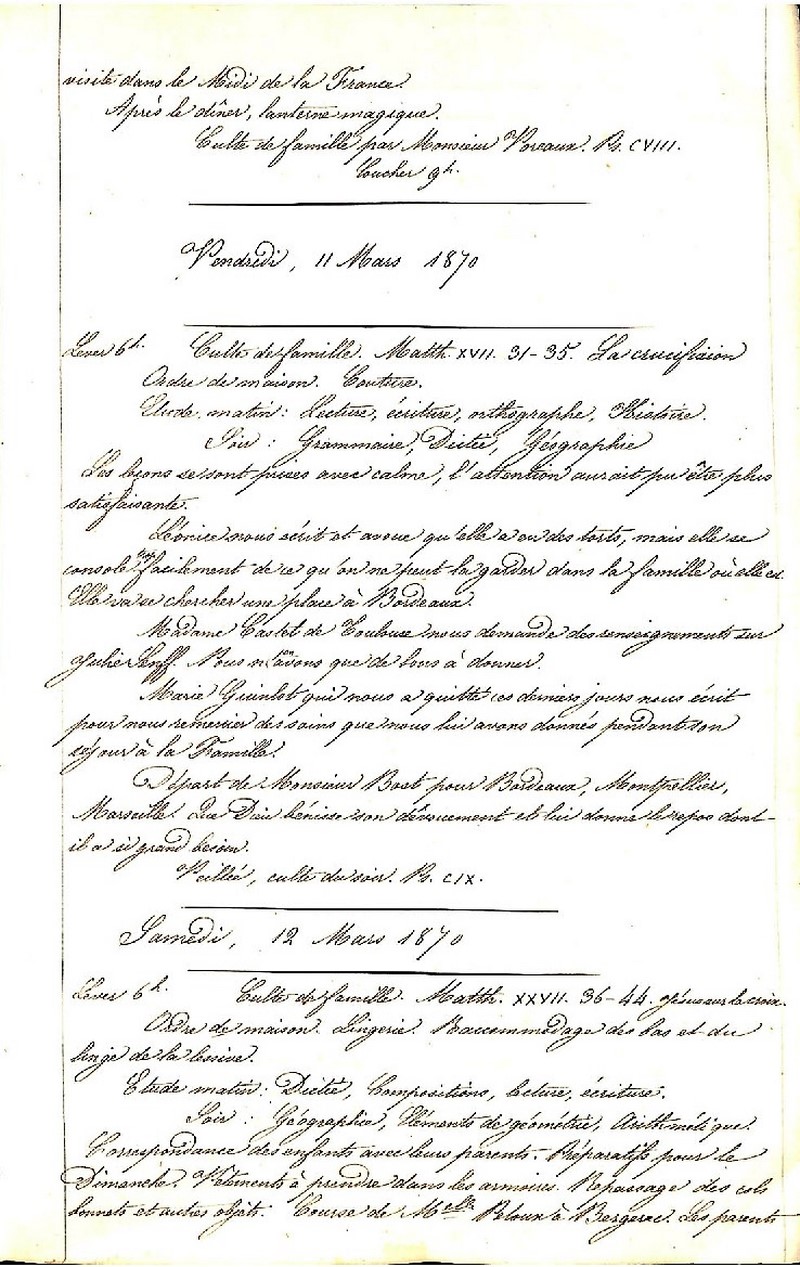 visite dans le Midi de la France.
Après le dîner, lanterne magique.
Culte de famille par Monsieur Ps. CVIII.
Coucher 9h.
Vendredi, 11 Mars 1870
Lever 6h. Culte de famille. Matth. XVII. 31-35. La crucifixion
Ordre de maison. Couture.
Etude matin: Lecture, écriture, orthographe, Histoire.
Soir: Grammaire, Dictée, Géographie
Les leçons se sont prises avec calme, l'attention aurait pu être plus
satisfaisante.
Léonice nous écrit et avoue qu'elle a eu des torts, mais elle se
console trop facilement de ce qu'on ne peut la garder dans la famille où elle est.
Elle va se chercher une place à Bordeaux.
Madame Castel de Toulouse nous demande des renseignements sur
Julie Senff. Nous n'en avons que de bons à donner.
Marie Guinlot qui nous a quitté ces derniers jours nous écrit
pour nous remercier des soins que nous lui avons donnés pendant son
séjour à la Famille.
Départ de Monsieur Bost pour Bordeaux, Montpellier,
Marseille. Que Dieu bénisse son dévouement et lui donne le repos dont
il a si grand besoin.
Veillée, culte du soir. Ps. CIX.
Samedi, 12 Mars 1870
Lever 6h. Culte de famille. Matth. XXVII. 36-44. Jésus sur la croix.
Ordre de maison. Lingerie. Raccommodage des bas et du
linge de la lessive.
Etude matin: Dictée, Compositions, lecture, écriture.
Soir: Géographie, Eléments de géométrie, Arithmétique.
Correspondance des enfants avec leurs parents. Préparatifs pour le
Dimanche. Vêtements à prendre dans les armoires. Repassage des cols
bonnets et autres objets. Course de Melle à Bergerac. Les parents